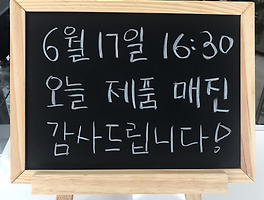 6월 17일 16:30
오늘 제품 매진
감사드립니다!